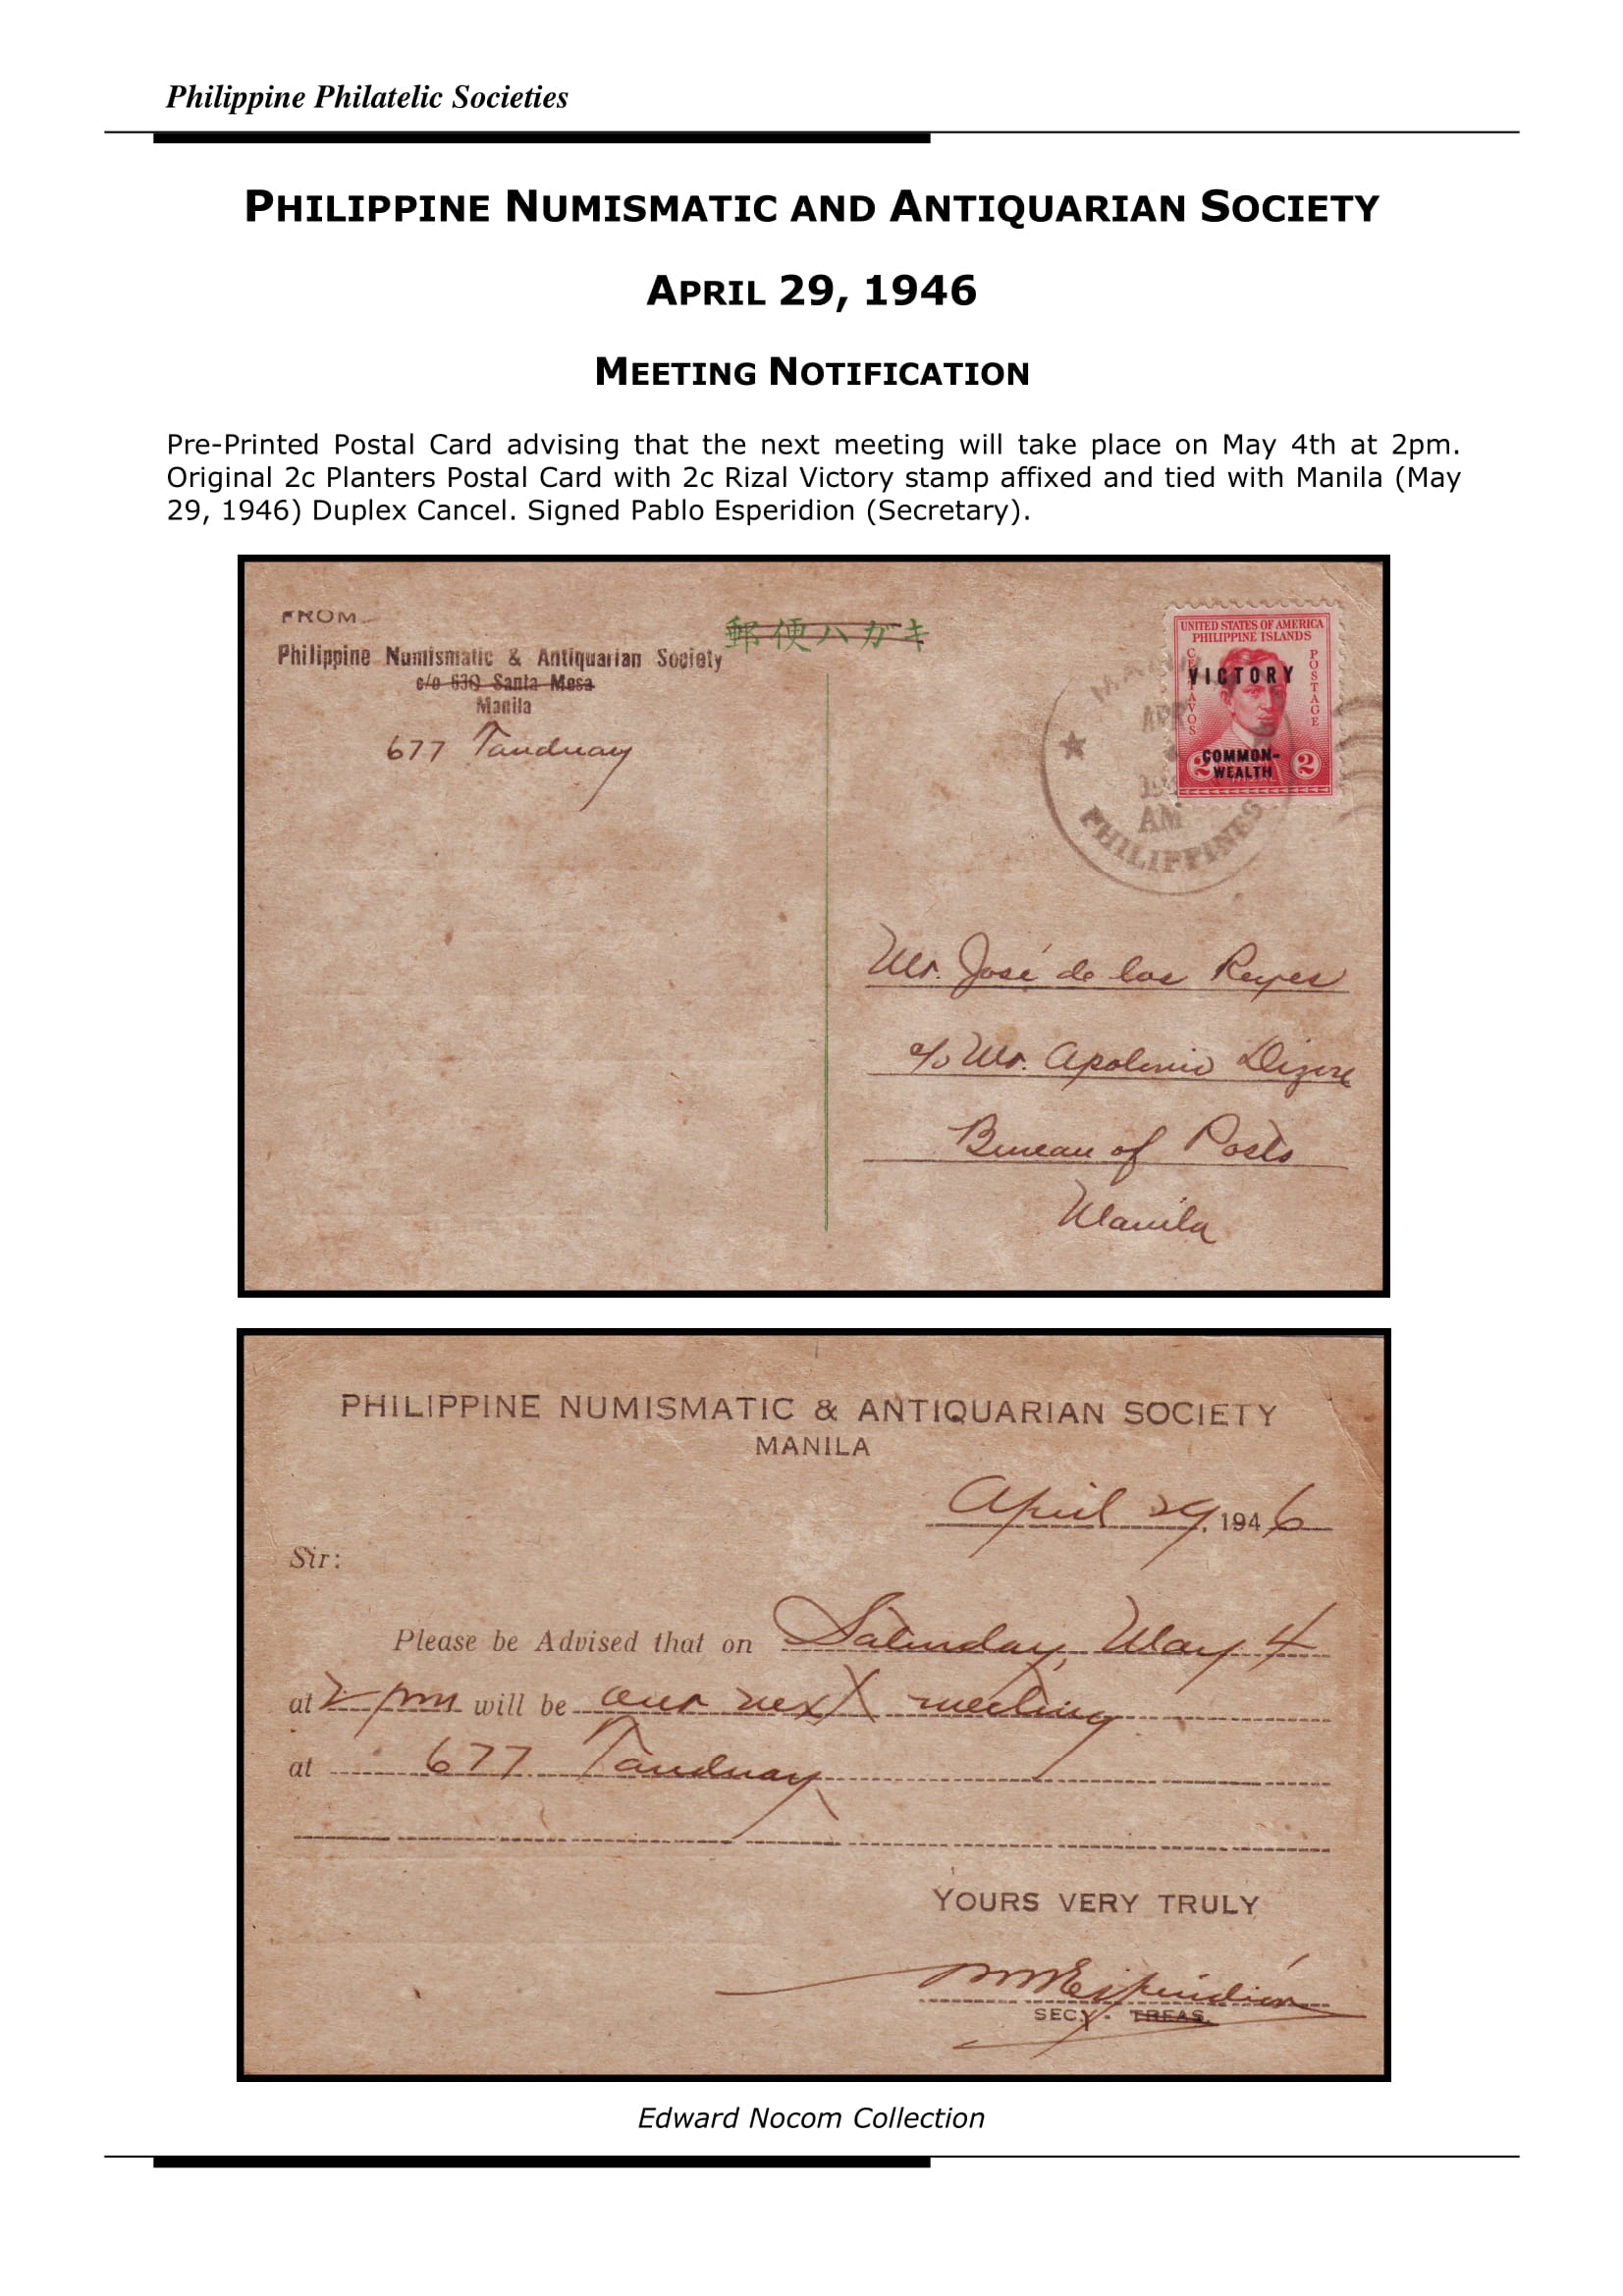 Philippine Philatelic Societies
PHILIPPINE NUMISMATIC AND ANTIQUARIAN SOCIETY
APRIL 29, 1946
MEETING NOTIFICATION
Pre-Printed Postal Card advising that the next meeting will take place on May 4th at 2pm.
Original 2c Planters Postal Card with 2c Rizal Victory stamp affixed and tied with Manila (May
29, 1946) Duplex Cancel. Signed Pablo Esperidion (Secretary).
FROM
Philippine Numismatic & Antiquarian Society
c/o 630 Santa Mesa
Manila
677 Tanduay
郵便ハガキ
UNITED STATES OF AMERICA
PHILIPPINE ISLANDS
CENTAVOS
POSTAGE
VICTORY
COMMON-
WEALTH
2 2
MANILA
APR
AM
PHILIPPINES
Mr. José de los Reyes
c/o Mr. Apolonio Dizon
Bureau of Posts
Manila
PHILIPPINE NUMISMATIC & ANTIQUARIAN SOCIETY
MANILA
April 29, 1946
Sir:
Please be Advised that on Saturday, May 4
at 2 pm will be our next meeting
at 677 Tanduay
YOURS VERY TRULY
Esperidión
SECY. - TREAS.
Edward Nocom Collection